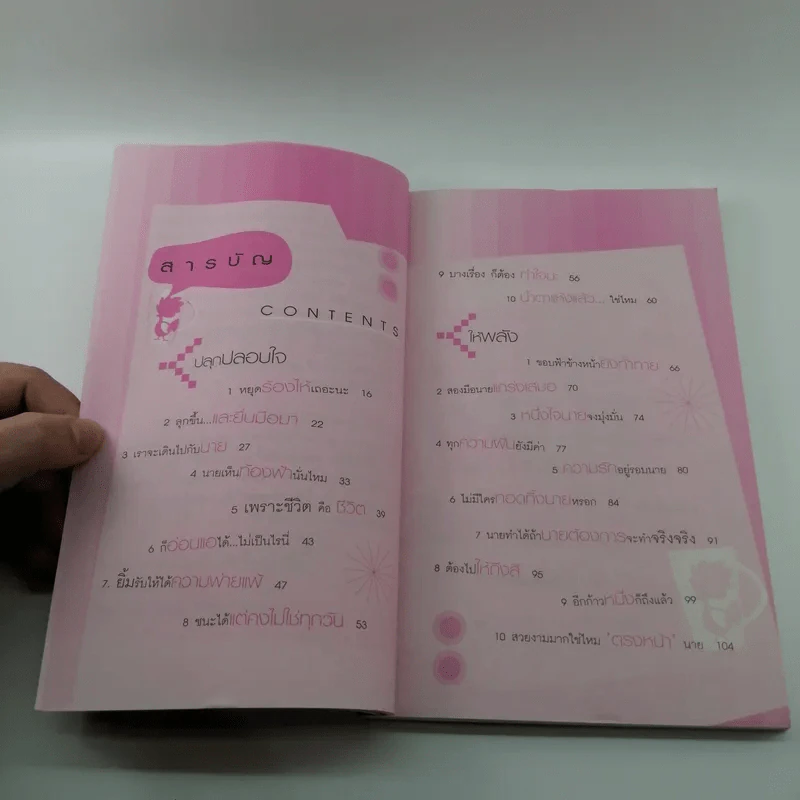 สารบัญ
CONTENTS
ปลุกปลอบใจ
1 หยุดร้องไห้เถอะนะ 16
2 ลุกขึ้น...และยื่นมือมา 22
3 เราจะเดินไปกับนาย 27
4 นายเห็นท้องฟ้านั่นไหม 33
5 เพราะชีวิต คือ ชีวิต 39
6 ก็อ่อนแอได้...ไม่เป็นไรนี่ 43
7. ยิ้มรับให้ได้ความพ่ายแพ้ 47
8 ชนะได้แต่คงไม่ใช่ทุกวัน 53
9 บางเรื่อง ก็ต้อง ทำใจนะ 56
10 น้ำตาแห้งแล้ว... ใช่ไหม 60
ให้พลัง
1 ขอบฟ้าข้างหน้ายังท้าทาย 66
2 สองมือนายแกร่งเสมอ 70
3 หนึ่งใจนายจงมุ่งมั่น 74
4 ทุกความฝันยังมีค่า 77
5 ความรักอยู่รอบนาย 80
6 ไม่มีใครทอดทิ้งนายหรอก 84
7 นายทำได้ถ้านายต้องการจะทำจริงจริง 91
8 ต้องไปให้ถึงสิ 95
9 อีกก้าวหนึ่งก็ถึงแล้ว 99
10 สวยงามมากใช่ไหม 'ตรงหน้า' นาย 104